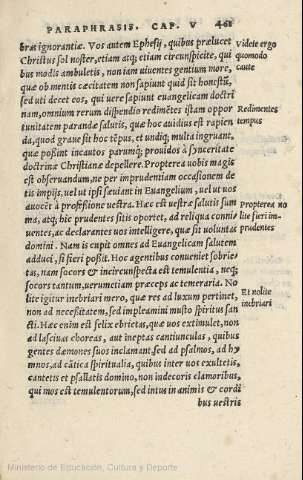 PARAPHRASIS. CAP. V 461
bras ignorantiæ. Vos autem Ephesij, quibus prælucet
Christus sol noster, etiam atq; etiam circunspicite, qui
bus modis ambuletis, non iam uiuentes gentium more,
quæ ob mentis cæcitatem non sapiunt quid sit honestũ,
sed uti decet eos, qui uere sapiunt euangelicam doctri
nam, omnium rerum dispendio redimẽtes istam oppor
tunitatem parandæ salutis, quæ hoc auidius est rapien
da, quod graue sit hoc tẽpus, et undiq; multa ingruant,
quæ possint incautos parumq; prouidos à synceritate
doctrinæ Christianæ depellere. Propterea uobis magis
est obseruandum, ne per imprudentiam occasionem de
tis impijs, uel ut ipsi sæuiant in Euangelium, uel ut uos
auocẽt à professione uestra. Hæc est uestræ salutis sum
ma, atq; hic prudentes sitis oportet, ad reliqua conniuẽtes,
ac declarantes uos intelligere, quæ sit uoluntas
domini. Nam is cupit omnes ad Euangelicam salutem
adduci, si fieri possit. Hoc agentibus conuenit sobrietas,
nam socors & incircunspecta est temulentia, neq;
socors tantum, uerumetiam præceps ac temeraria. No
lite igitur inebriari mero, quæ res ad luxum pertinet,
non ad necessitatem, sed impleamini musto spiritus san
cti. Hæc enim est felix ebrietas, quæ uos extimulet, non
ad lasciuas choreas, aut ineptas cantiunculas, quibus
gentes dæmones suos inclamant, sed ad psalmos, ad hy
mnos, ad cãtica spiritualia, quibus inter uos exultetis,
cantetis et psallatis domino, non indecoris clamoribus,
qui mos est temulentorum, sed intus in animis & cordi
bus uestris
Videte ergo
quomodo
caute
Redimentes
tempus
Propterea no
lite fieri im-
prudentes
Et nolite
inebriari
Ministerio de Educación, Cultura y Deporte